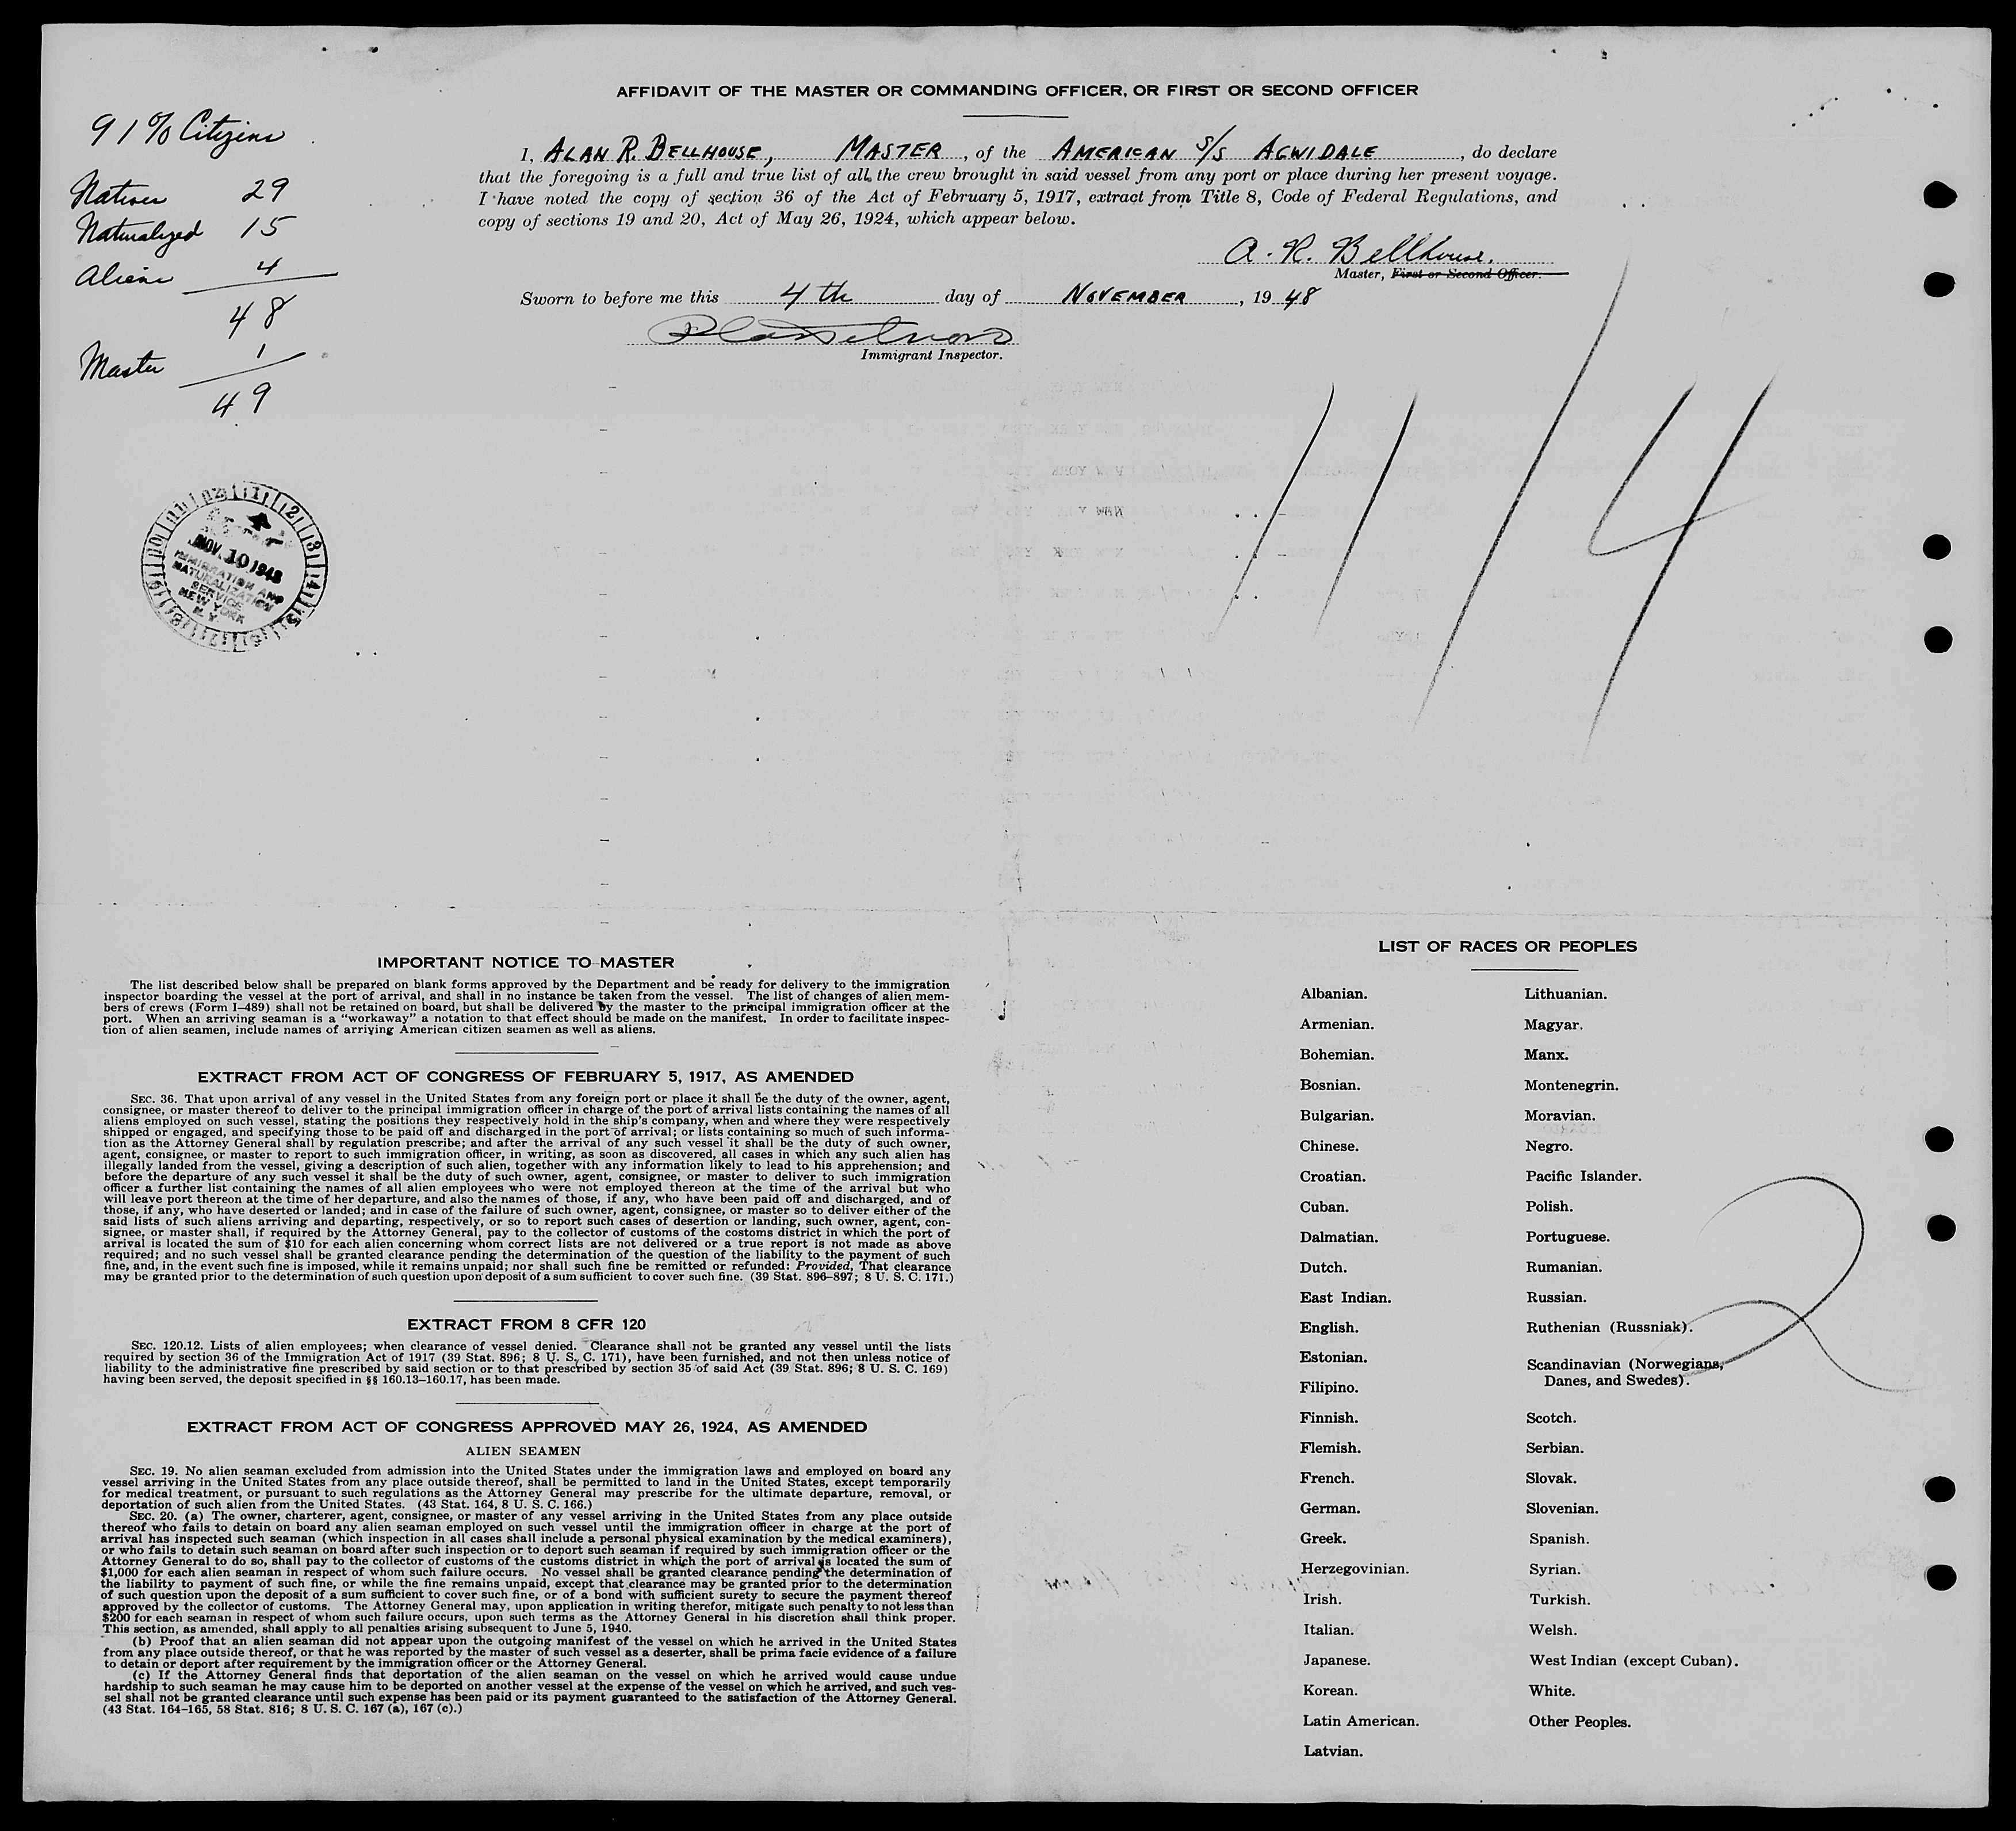 AFFIDAVIT OF THE MASTER OR COMMANDING OFFICER, OR FIRST OR SECOND OFFICER
I, ALAN R. BELLHOUSE, MASTER, of the AMERICAN S/S AGWIDALE, do declare
that the foregoing is a full and true list of all the crew brought in said vessel from any port or place during her present voyage.
I have noted the copy of section 36 of the Act of February 5, 1917, extract from Title 8, Code of Federal Regulations, and
copy of sections 19 and 20, Act of May 26, 1924, which appear below.
A. R. Bellhouse.
Master, First or Second Officer.
Sworn to before me this 4th day of NOVEMBER, 1948
Immigrant Inspector.
91% Citizens
Natives 29
Naturalized 15
Aliens 4
48
Master 1
49
11/4
NOV. 10 1948
IMMIGRATION AND
NATURALIZATION
SERVICE
NEW YORK
N.Y.
IMPORTANT NOTICE TO MASTER
The list described below shall be prepared on blank forms approved by the Department and be ready for delivery to the immigration
inspector boarding the vessel at the port of arrival, and shall in no instance be taken from the vessel. The list of changes of alien mem-
bers of crews (Form I-489) shall not be retained on board, but shall be delivered by the master to the principal immigration officer at the
port. When an arriving seaman is a "workaway" a notation to that effect should be made on the manifest. In order to facilitate inspec-
tion of alien seamen, include names of arriving American citizen seamen as well as aliens.
EXTRACT FROM ACT OF CONGRESS OF FEBRUARY 5, 1917, AS AMENDED
SEC. 36. That upon arrival of any vessel in the United States from any foreign port or place it shall be the duty of the owner, agent,
consignee, or master thereof to deliver to the principal immigration officer in charge of the port of arrival lists containing the names of all
aliens employed on such vessel, stating the positions they respectively hold in the ship's company, when and where they were respectively
shipped or engaged, and specifying those to be paid off and discharged in the port of arrival; or lists containing so much of such informa-
tion as the Attorney General shall by regulation prescribe; and after the arrival of any such vessel it shall be the duty of such owner,
agent, consignee, or master to report to such immigration officer, in writing, as soon as discovered, all cases in which any such alien has
illegally landed from the vessel, giving a description of such alien, together with any information likely to lead to his apprehension; and
before the departure of any such vessel it shall be the duty of such owner, agent, consignee, or master to deliver to such immigration
officer a further list containing the names of all alien employees who were not employed thereon at the time of the arrival but who
will leave port thereon at the time of her departure, and also the names of those, if any, who have been paid off and discharged, and of
those, if any, who have deserted or landed; and in case of the failure of such owner, agent, consignee, or master so to deliver either of the
said lists of such aliens arriving and departing, respectively, or so to report such cases of desertion or landing, such owner, agent, con-
signee, or master shall, if required by the Attorney General, pay to the collector of customs of the costoms district in which the port of
arrival is located the sum of $10 for each alien concerning whom correct lists are not delivered or a true report is not made as above
required; and no such vessel shall be granted clearance pending the determination of the question of the liability to the payment of such
fine, and, in the event such fine is imposed, while it remains unpaid; nor shall such fine be remitted or refunded: Provided, That clearance
may be granted prior to the determination of such question upon deposit of a sum sufficient to cover such fine. (39 Stat. 896-897; 8 U. S. C. 171.)
EXTRACT FROM 8 CFR 120
SEC. 120.12. Lists of alien employees; when clearance of vessel denied. Clearance shall not be granted any vessel until the lists
required by section 36 of the Immigration Act of 1917 (39 Stat. 896; 8 U. S. C. 171), have been furnished, and not then unless notice of
liability to the administrative fine prescribed by said section or to that prescribed by section 35 of said Act (39 Stat. 896; 8 U. S. C. 169)
having been served, the deposit specified in §§ 160.13-160.17, has been made.
EXTRACT FROM ACT OF CONGRESS APPROVED MAY 26, 1924, AS AMENDED
ALIEN SEAMEN
SEC. 19. No alien seaman excluded from admission into the United States under the immigration laws and employed on board any
vessel arriving in the United States from any place outside thereof, shall be permitted to land in the United States, except temporarily
for medical treatment, or pursuant to such regulations as the Attorney General may prescribe for the ultimate departure, removal, or
deportation of such alien from the United States. (43 Stat. 164, 8 U. S. C. 166.)
SEC. 20. (a) The owner, charterer, agent, consignee, or master of any vessel arriving in the United States from any place outside
thereof who fails to detain on board any alien seaman employed on such vessel until the immigration officer in charge at the port of
arrival has inspected such seaman (which inspection in all cases shall include a personal physical examination by the medical examiners),
or who fails to detain such seaman on board after such inspection or to deport such seaman if required by such immigration officer or the
Attorney General to do so, shall pay to the collector of customs of the customs district in which the port of arrival is located the sum of
$1,000 for each alien seaman in respect of whom such failure occurs. No vessel shall be granted clearance pending the determination of
the liability to payment of such fine, or while the fine remains unpaid, except that clearance may be granted prior to the determination
of such question upon the deposit of a sum sufficient to cover such fine, or of a bond with sufficient surety to secure the payment thereof
approved by the collector of customs. The Attorney General may, upon application in writing therefor, mitigate such penalty to not less than
$200 for each seaman in respect of whom such failure occurs, upon such terms as the Attorney General in his discretion shall think proper.
This section, as amended, shall apply to all penalties arising subsequent to June 5, 1940.
(b) Proof that an alien seaman did not appear upon the outgoing manifest of the vessel on which he arrived in the United States
from any place outside thereof, or that he was reported by the master of such vessel as a deserter, shall be prima facie evidence of a failure
to detain or deport after requirement by the immigration officer or the Attorney General.
(c) If the Attorney General finds that deportation of the alien seaman on the vessel on which he arrived would cause undue
hardship to such seaman he may cause him to be deported on another vessel at the expense of the vessel on which he arrived, and such ves-
sel shall not be granted clearance until such expense has been paid or its payment guaranteed to the satisfaction of the Attorney General.
(43 Stat. 164-165, 58 Stat. 816; 8 U. S. C. 167 (a), 167 (c).)
LIST OF RACES OR PEOPLES
Albanian.
Armenian.
Bohemian.
Bosnian.
Bulgarian.
Chinese.
Croatian.
Cuban.
Dalmatian.
Dutch.
East Indian.
English.
Estonian.
Filipino.
Finnish.
Flemish.
French.
German.
Greek.
Herzegovinian.
Irish.
Italian.
Japanese.
Korean.
Latin American.
Latvian.
Lithuanian.
Magyar.
Manx.
Montenegrin.
Moravian.
Negro.
Pacific Islander.
Polish.
Portuguese.
Rumanian.
Russian.
Ruthenian (Russniak).
Scandinavian (Norwegians,
Danes, and Swedes).
Scotch.
Serbian.
Slovak.
Slovenian.
Spanish.
Syrian.
Turkish.
Welsh.
West Indian (except Cuban).
White.
Other Peoples.
2